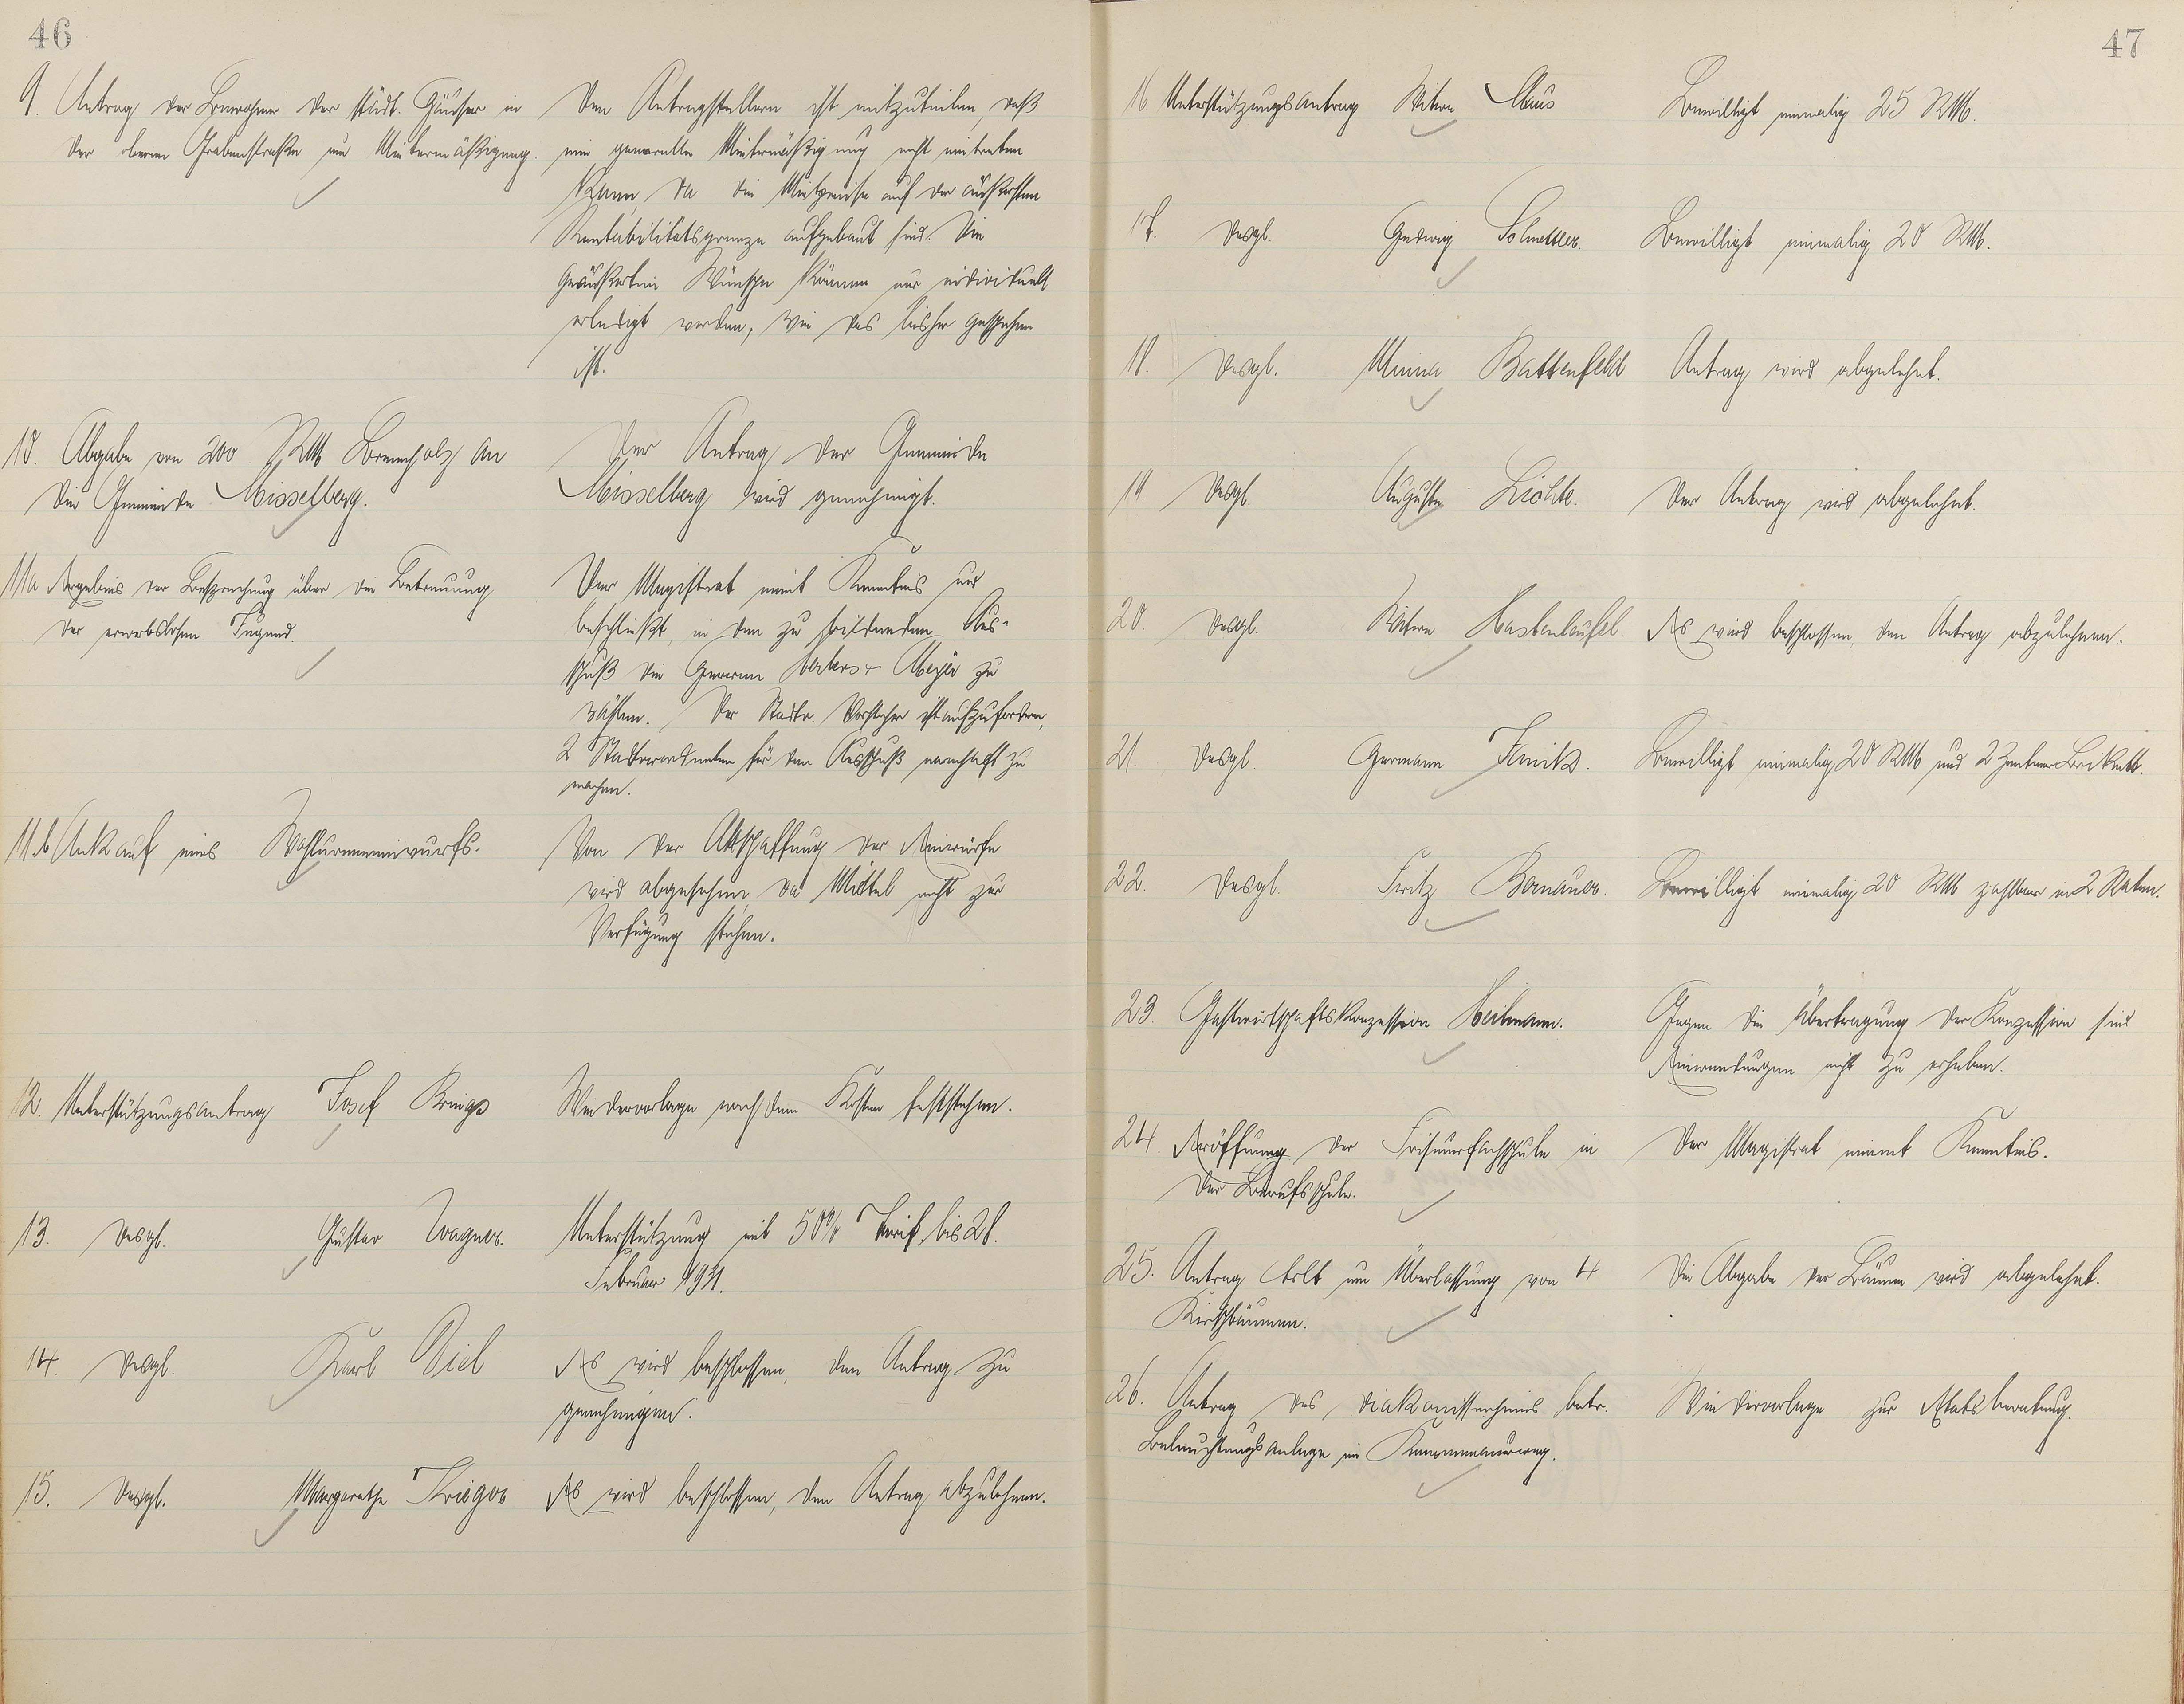 46
9. Antrag der Bewohner der städt. Häuser in
der oberen Grabenstraße um Mietermäßigung.
Den Antragstellern ist mitzuteilen, daß
eine generelle Mietermäßigung nicht eintreten
kann, da die Mietpreise auf der äußersten
Rentabilitätsgrenze aufgebaut sind. Die
geäußerten Wünsche können nur individuell
erledigt werden, wie das bisher geschehen
ist.
10. Abgabe von 200 RM Brennholz an
die Gemeinde Misselberg.
Der Antrag der Gemeinde
Misselberg wird genehmigt.
11a Ergebnis der Besprechung über die Betreuung
der erwerbslosen Jugend.
Der Magistrat nimmt Kenntnis und
beschließt, in den zu bildenden Aus-
schuß die Herren Meyer zu
wählen. Der Stadtv. Vorsteher ist aufzufordern,
2 Stadtverordneten für den Ausschuß namhaft zu
machen.
11.b Ankauf eines Wahlurneneinwurfs.
Von der Abschaffung der Einwürfe
wird abgesehen, da Mittel nicht zur
Verfügung stehen.
12. Unterstützungsantrag Josef Brings
Wiedervorlage nachdem Kosten feststehen.
13. Desgl. Gustav Wagner.
Unterstützung mit 50% Tarif bis 28.
Februar 1931.
14. Desgl. Karl Diel
Es wird beschlossen, den Antrag zu
genehmigen.
15. Desgl. Margarethe Krieger
Es wird beschlossen, den Antrag abzulehnen.
47
16 Unterstützungsantrag Witwe Maus
Bewilligt einmalig 25 RM.
17. Desgl. Hedwig Schmelzer.
Bewilligt einmalig 20 RM.
18. Desgl. Minna Battenfeld
Antrag wird abgelehnt.
19. Desgl. Auguste Lichte.
Der Antrag wird abgelehnt.
20. Desgl. Witwe Hastenteufel.
Es wird beschlossen, den Antrag abzulehnen.
21. Desgl. Hermann
Bewilligt einmalig 20 RM und 2 Zentner Briketts.
22. Desgl. Fritz Bornauer.
Bewilligt einmalig 20 RM zahlbar in 2 Raten.
23. Gastwirtschaftskonzession Heilmann.
Gegen die Übertragung der Konzession sind
Einwendungen nicht zu erheben.
24. Eröffnung der Friseurfachschule in
der Berufsschule.
Der Magistrat nimmt Kenntnis.
25. Antrag um Überlassung von 4
Kirschbäumen.
Die Abgabe der Bäume wird abgelehnt.
26. Antrag des Diakonissenheims betr.
Beleuchtungsanlage im
Wiedervorlage zur Etatsberatung.